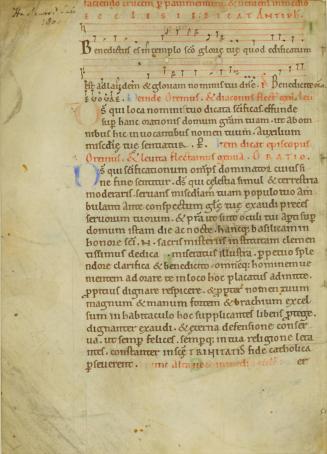 faciendo crucem p pavimentum & veniens in medio
ECCLESIE DICAT ANTIPH.
Benedictus es in templo sco glorie tue quod edificatum
est ad laudem & gloriam nominis tui dne. Benedicite
EVOVAE. Deinde Oremus. & diaconus flect
Ds qui loca nomini tuo dicata scificas effunde
sup hanc orationis domum gram tuam. ut ab om
nibus hic invocantibus nomen tuum. auxilium
miscdie tue sentiatur. p. Item dicat episcopus
Oremus. & levita flectamus genua. ORATIO.
Ds qui scificationum omps dominator. cuius si
ne fine sentitur. ds qui celestia simul & terrestria
moderaris. servans misdiam tuam populo tuo am
bulanti ante conspectum glę tuę exaudi preces
servorum tuorum. & pra ut sint oculi tui apti sup
domum istam die ac nocte. hancq basilicam in
honore sci .N. sacris misteriis institutam clemen
tissimus dedica. miseratus illustra. pprio splen
dore clarifica & benedicito. omneq; hominem ve
nientem adorare te in loco hoc placatus admitte.
ppitius dignare respicere. & ppter nomen tuum
magnum & manum fortem & brachium excel
sum in habitaculo hoc supplicantes libens ptege.
dignanter exaudi. & eterna defensione conser
va. ut semp felices. sempq; in tua religione leta
ntes. constanter in scę TRINITATIS fide catholica
pseverent.